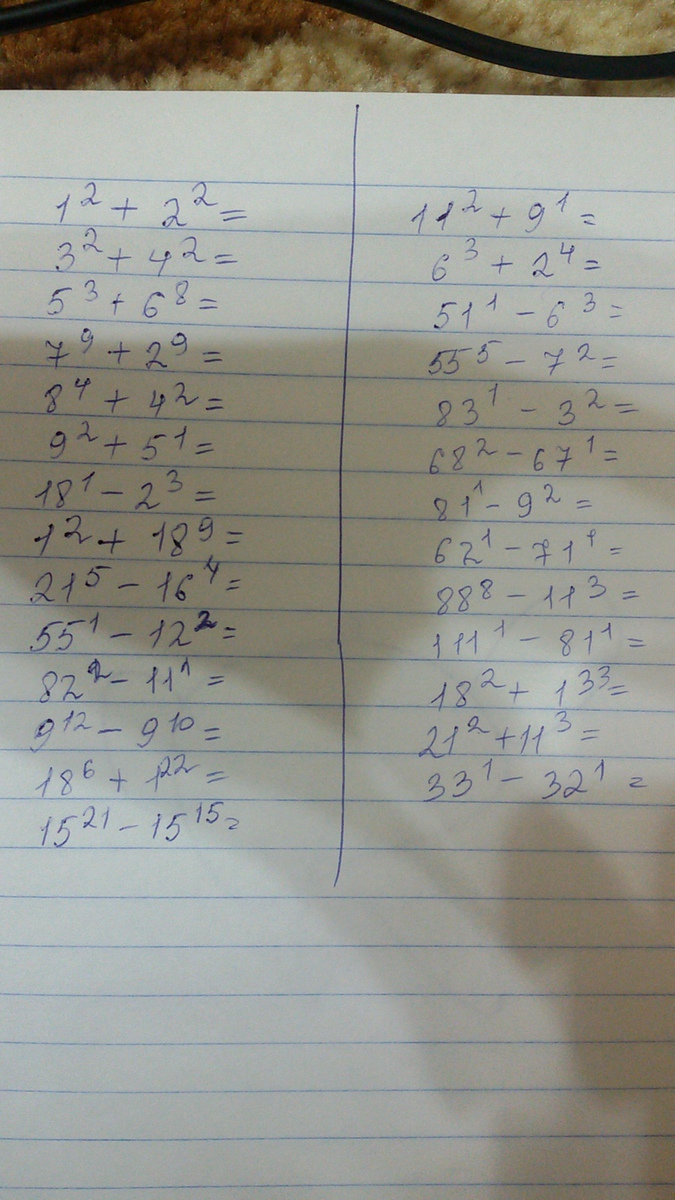 1² + 2² =
3² + 4² =
5³ + 6⁸ =
7⁹ + 2⁹ =
8⁴ + 4² =
9² + 5¹ =
18¹ - 2³ =
1² + 18⁹ =
21⁵ - 16⁴ =
55¹ - 12² =
82² - 11¹ =
9¹² - 9¹⁰ =
18⁶ + 1²² =
15²¹ - 15¹⁵ =
11² + 9¹ =
6³ + 2⁴ =
51¹ - 6³ =
55⁵ - 7² =
83¹ - 3² =
68² - 67¹ =
81¹ - 9² =
62¹ - 71¹ =
88⁸ - 11³ =
111¹ - 81¹ =
18² + 1³³ =
21² + 11³ =
33¹ - 32¹ =